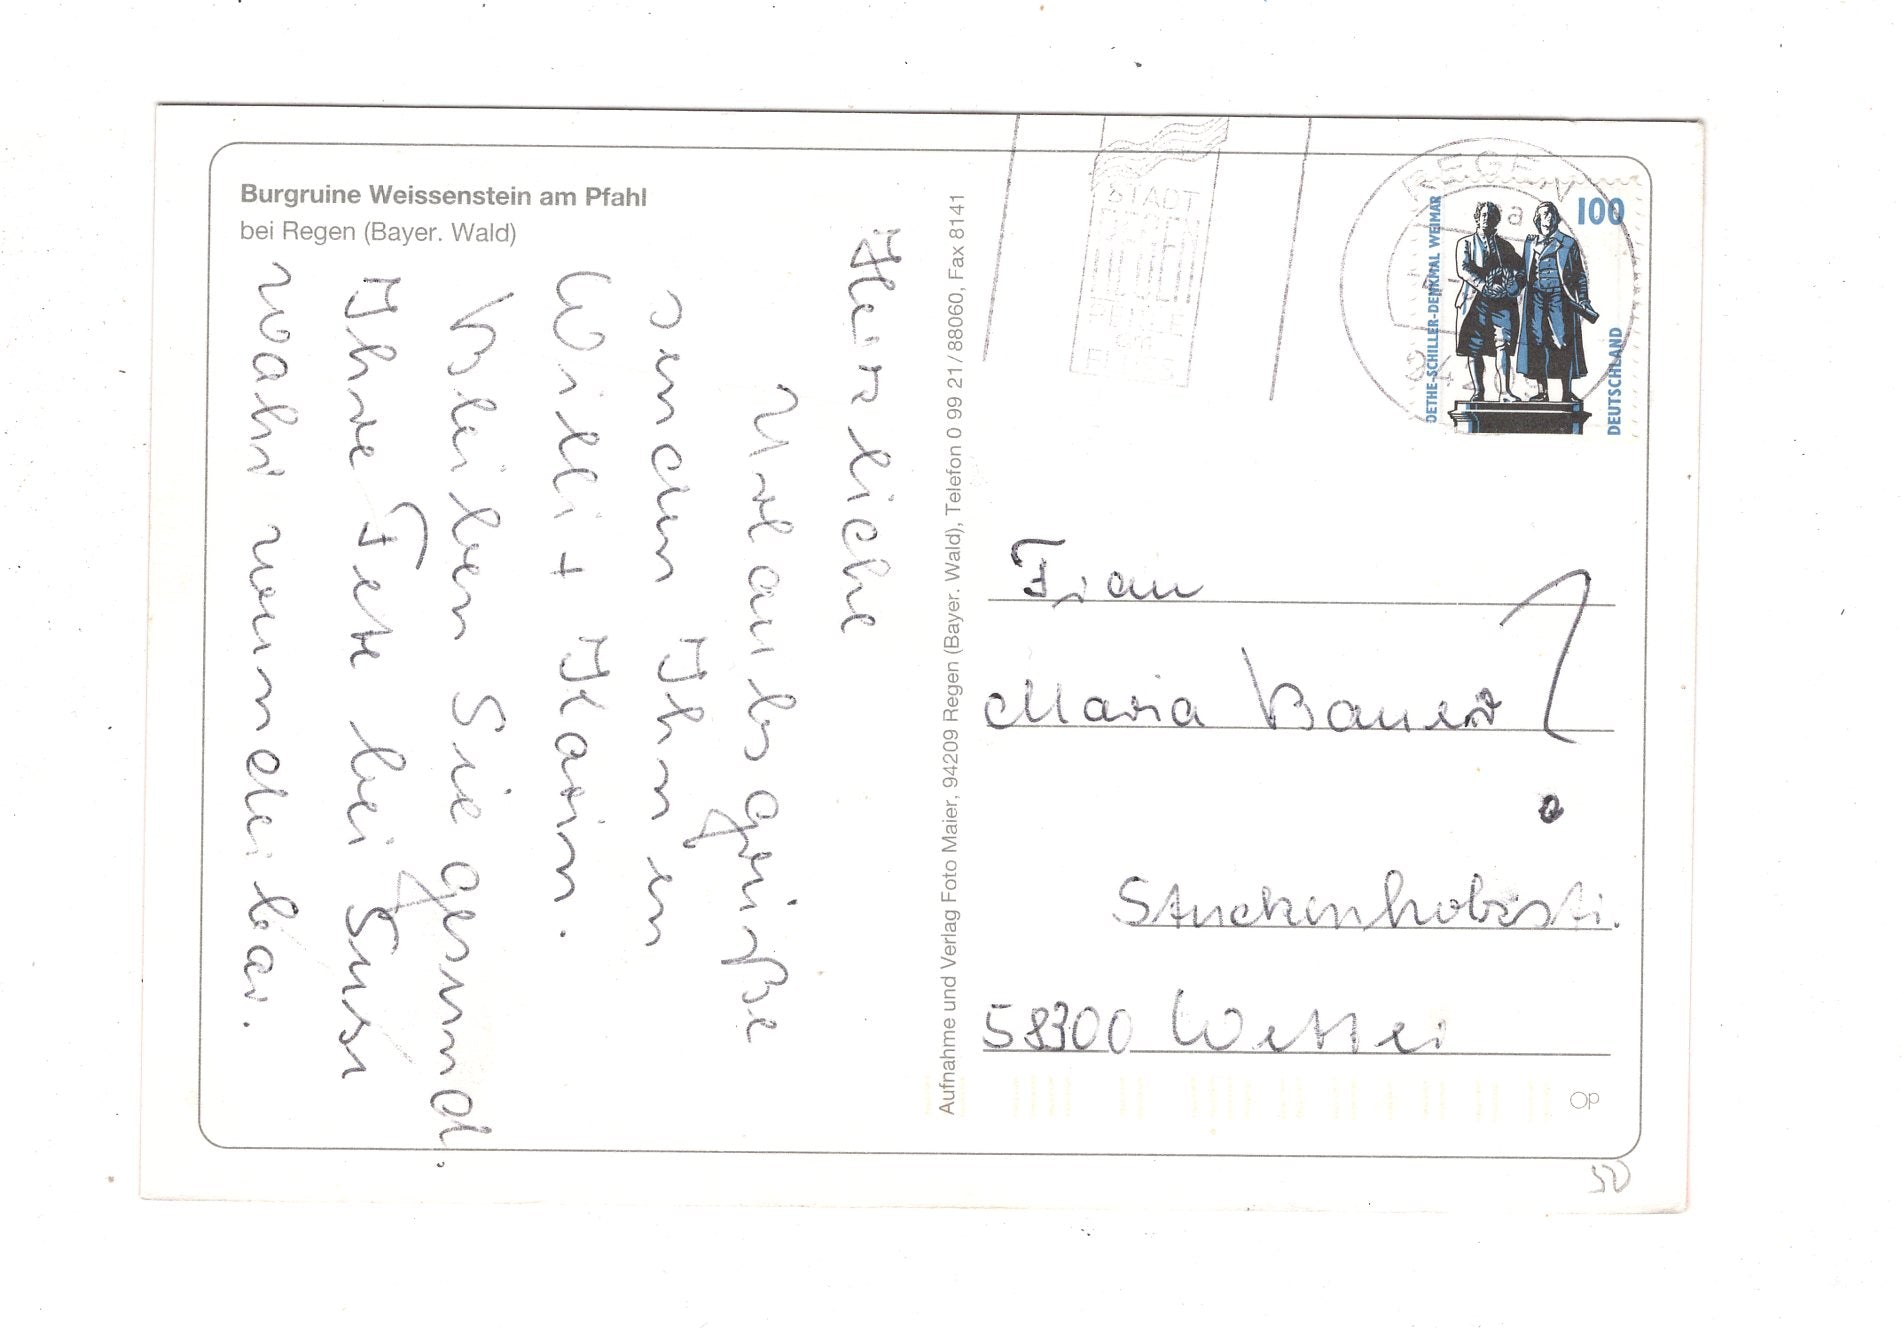 Burgruine Weissenstein am Pfahl
bei Regen (Bayer. Wald)
Herzliche
Urlaubsgrüße
senden Ihnen
Willi + Karin.
Bleiben Sie gesund
Ihre Fete bei
wahr wunderbar.
Aufnahme und Verlag Foto Maier, 94209 Regen (Bayer. Wald), Telefon 0 99 21/88060, Fax 8141
STADT
REGEN
a
100
OETHE-SCHILLER-DENKMAL WEIMAR
DEUTSCHLAND
Frau
Maria Bauer
58300 Wetter
Op
50